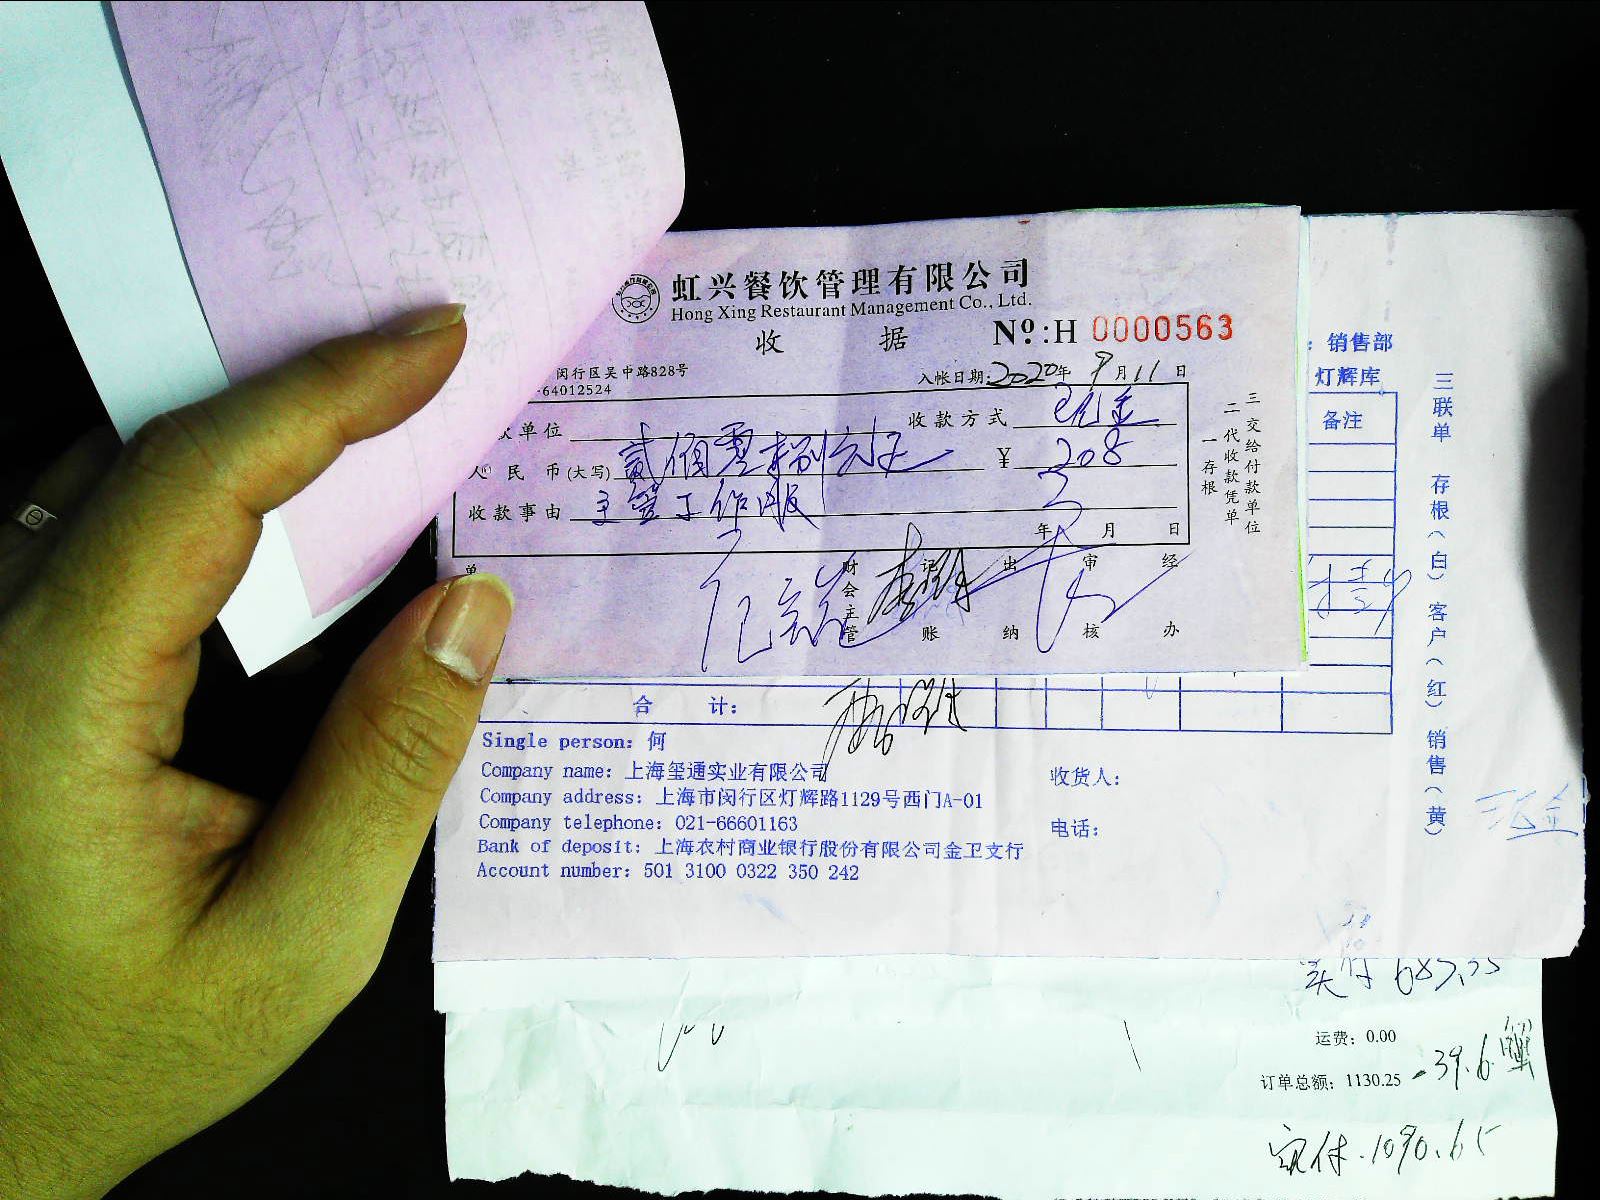 虹兴餐饮管理有限公司
Hong Xing Restaurant Management Co., Ltd.
收 据
Nº.:H 0000563
闵行区吴中路828号
-64012524
入帐日期:2020年9月11日
款单位
收款方式 现金
人民币(大写) 贰佰零捌元正 ¥ 208
收款事由 主管工作服
年 月 日
一存根
二代收款凭单
三交给付款单位
单
财会主管
记账
出纳
审核
经办
: 销售部
灯辉库
备注
三联单 存根(白) 客户(红) 销售(黄)
合 计:
Single person: 何
Company name: 上海玺通实业有限公司
Company address: 上海市闵行区灯辉路1129号西门A-01
Company telephone: 021-66601163
Bank of deposit: 上海农村商业银行股份有限公司金卫支行
Account number: 501 3100 0322 350 242
收货人:
电话:
现金
实付 687.55
运费: 0.00
订单总额: 1130.25 -39.6 蟹
实付.1090.65